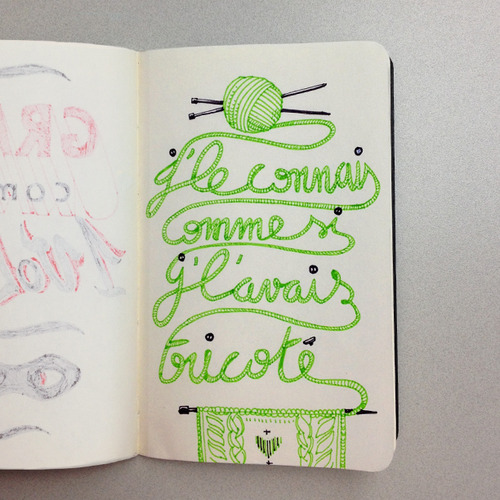 GR
com
j'le connais
comme si
j'l'avais
tricoté